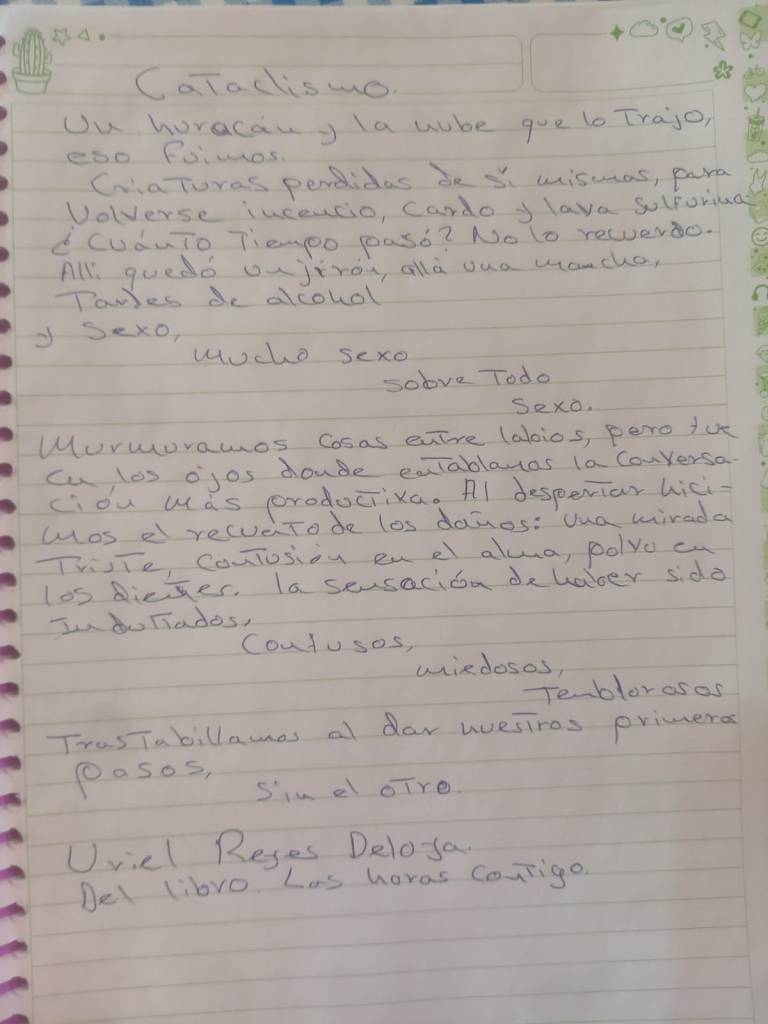 Cataclismo.
Un huracán y la nube que lo Trajo,
eso fuimos.
Criaturas perdidas de sí mismas, para
Volverse incencio, cardo y lava sulfurina
¿Cuánto Tiempo pasó? No lo recuerdo.
Allí quedó un jirón, allá una mancha,
Tardes de alcohol
y sexo,
mucho sexo
sobre Todo
sexo.
Murmuramos cosas entre labios, pero fue
en los ojos donde entablamos la conversa-
ción más productiva. Al despertar hici-
mos el recuento de los daños: una mirada
Triste, contusión en el alma, polvo en
los dientes. la sensación de haber sido
Indultados,
Confusos,
miedosos,
Temblorosos
Trastabillamos al dar nuestros primeros
pasos,
sin el otro.
Uriel Reyes Deloya.
Del libro Las horas contigo.